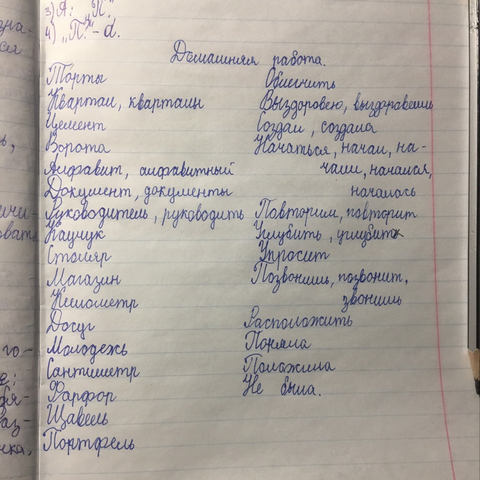 3) А: „П".
4) „П." – а.
Домашняя работа.
Торты
Квартал, квартали
Цемент
Ворота
Алфавит, алфавитный
Документ, документы
Руководитель, руководить
Каучук
Столяр
Магазин
Километр
Досуг
Молодежь
Сантиметр
Фарфор
Щавель
Портфель
Облегчить
Выздоровею, выздоровеешь
Создал, создала
Начаться, начал, на-
чали, начался,
началось
Повторим, повторит
Углубить, углубить
Упросит
Позвонишь, позвонит,
звонишь
Расположить
Поняла
Положила
Не была.